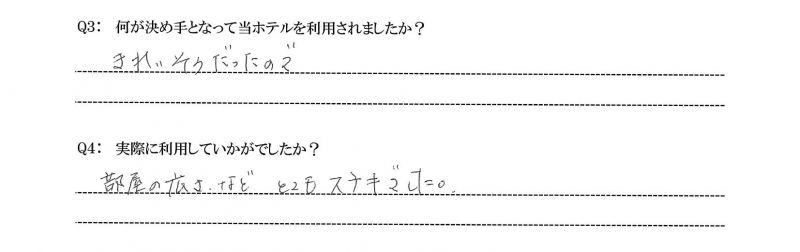 Q3: 何が決め手となって当ホテルを利用されましたか?
きれいそうだったので
Q4: 実際に利用していかがでしたか?
部屋の広さ、など とてもステキでした。